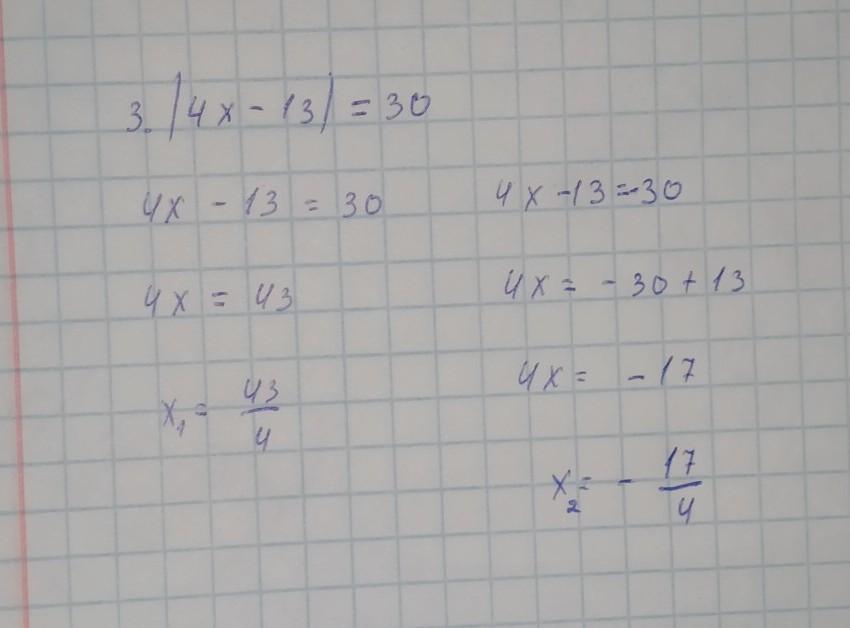 3. |4x - 13| = 30
4x - 13 = 30
4x = 43
x₁ = 43/4
4x - 13 = -30
4x = - 30 + 13
4x = - 17
x₂ = - 17/4